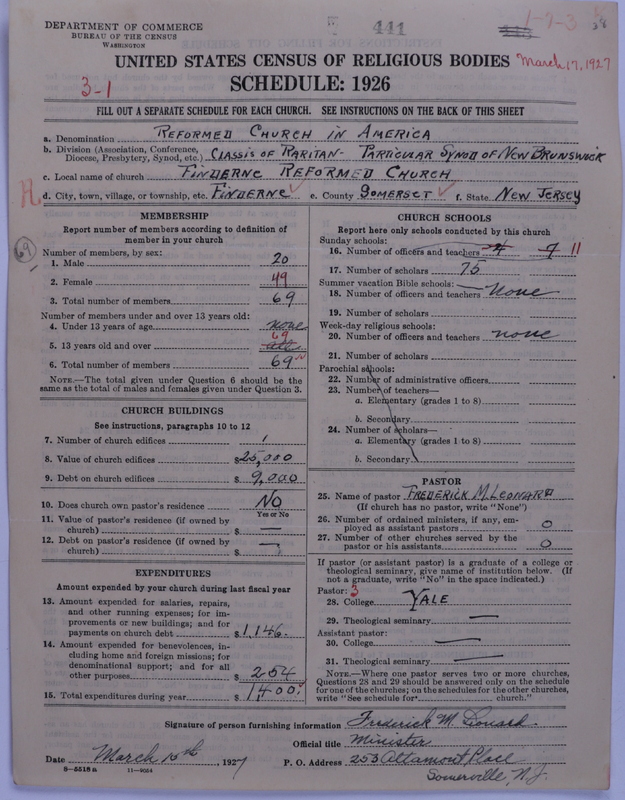 DEPARTMENT OF COMMERCE
BUREAU OF THE CENSUS
WASHINGTON
441
1-9-3
March 17, 1927
UNITED STATES CENSUS OF RELIGIOUS BODIES
SCHEDULE: 1926
3-1
FILL OUT A SEPARATE SCHEDULE FOR EACH CHURCH. SEE INSTRUCTIONS ON THE BACK OF THIS SHEET
a. Denomination REFORMED CHURCH IN AMERICA
b. Division (Association, Conference, Diocese, Presbytery, Synod, etc.) CLASSIS OF RARITAN - PARTICULAR SYNOD OF NEW BRUNSWICK
c. Local name of church FINDERNE REFORMED CHURCH
d. City, town, village, or township, etc. FINDERNE e. County SOMERSET f. State NEW JERSEY
MEMBERSHIP
Report number of members according to definition of
member in your church
69
Number of members, by sex:
1. Male 20
2. Female 49
3. Total number of members 69
Number of members under and over 13 years old:
4. Under 13 years of age none
69
5. 13 years old and over all
6. Total number of members 69
NOTE.—The total given under Question 6 should be the
same as the total of males and females given under Question 3.
CHURCH BUILDINGS
See instructions, paragraphs 10 to 12
7. Number of church edifices 1
8. Value of church edifices $25,000
9. Debt on church edifices $ 9,000
10. Does church own pastor's residence NO
Yes or No
11. Value of pastor's residence (if owned by
church) $ —
12. Debt on pastor's residence (if owned by
church) $ —
EXPENDITURES
Amount expended by your church during last fiscal year
13. Amount expended for salaries, repairs,
and other running expenses; for im-
provements or new buildings; and for
payments on church debt $1,146.
14. Amount expended for benevolences, in-
cluding home and foreign missions; for
denominational support; and for all
other purposes $ 254
15. Total expenditures during year $1,400
CHURCH SCHOOLS
Report here only schools conducted by this church
Sunday schools:
16. Number of officers and teachers 4 7 11
17. Number of scholars 75
Summer vacation Bible schools:
18. Number of officers and teachers None
19. Number of scholars
Week-day religious schools:
20. Number of officers and teachers none
21. Number of scholars
Parochial schools:
22. Number of administrative officers
23. Number of teachers—
a. Elementary (grades 1 to 8)
b. Secondary
24. Number of scholars—
a. Elementary (grades 1 to 8)
b. Secondary
PASTOR
25. Name of pastor FREDERICK M. LEONARD
(If church has no pastor, write "None")
26. Number of ordained ministers, if any, em-
ployed as assistant pastors 0
27. Number of other churches served by the
pastor or his assistants 0
If pastor (or assistant pastor) is a graduate of a college or
theological seminary, give name of institution below. (If
not a graduate, write "No" in the space indicated.)
Pastor: 3
28. College YALE
29. Theological seminary —
Assistant pastor:
30. College —
31. Theological seminary —
NOTE.—Where one pastor serves two or more churches,
Questions 28 and 29 should be answered only on the schedule
for one of the churches; on the schedules for the other churches,
write "See schedule for* church."
Signature of person furnishing information Frederick M. Leonard.
Official title Minister
Date March 15th, 1927 P. O. Address 253 Altamont Place
Somerville, N. J.
8—5515 a 11—9054